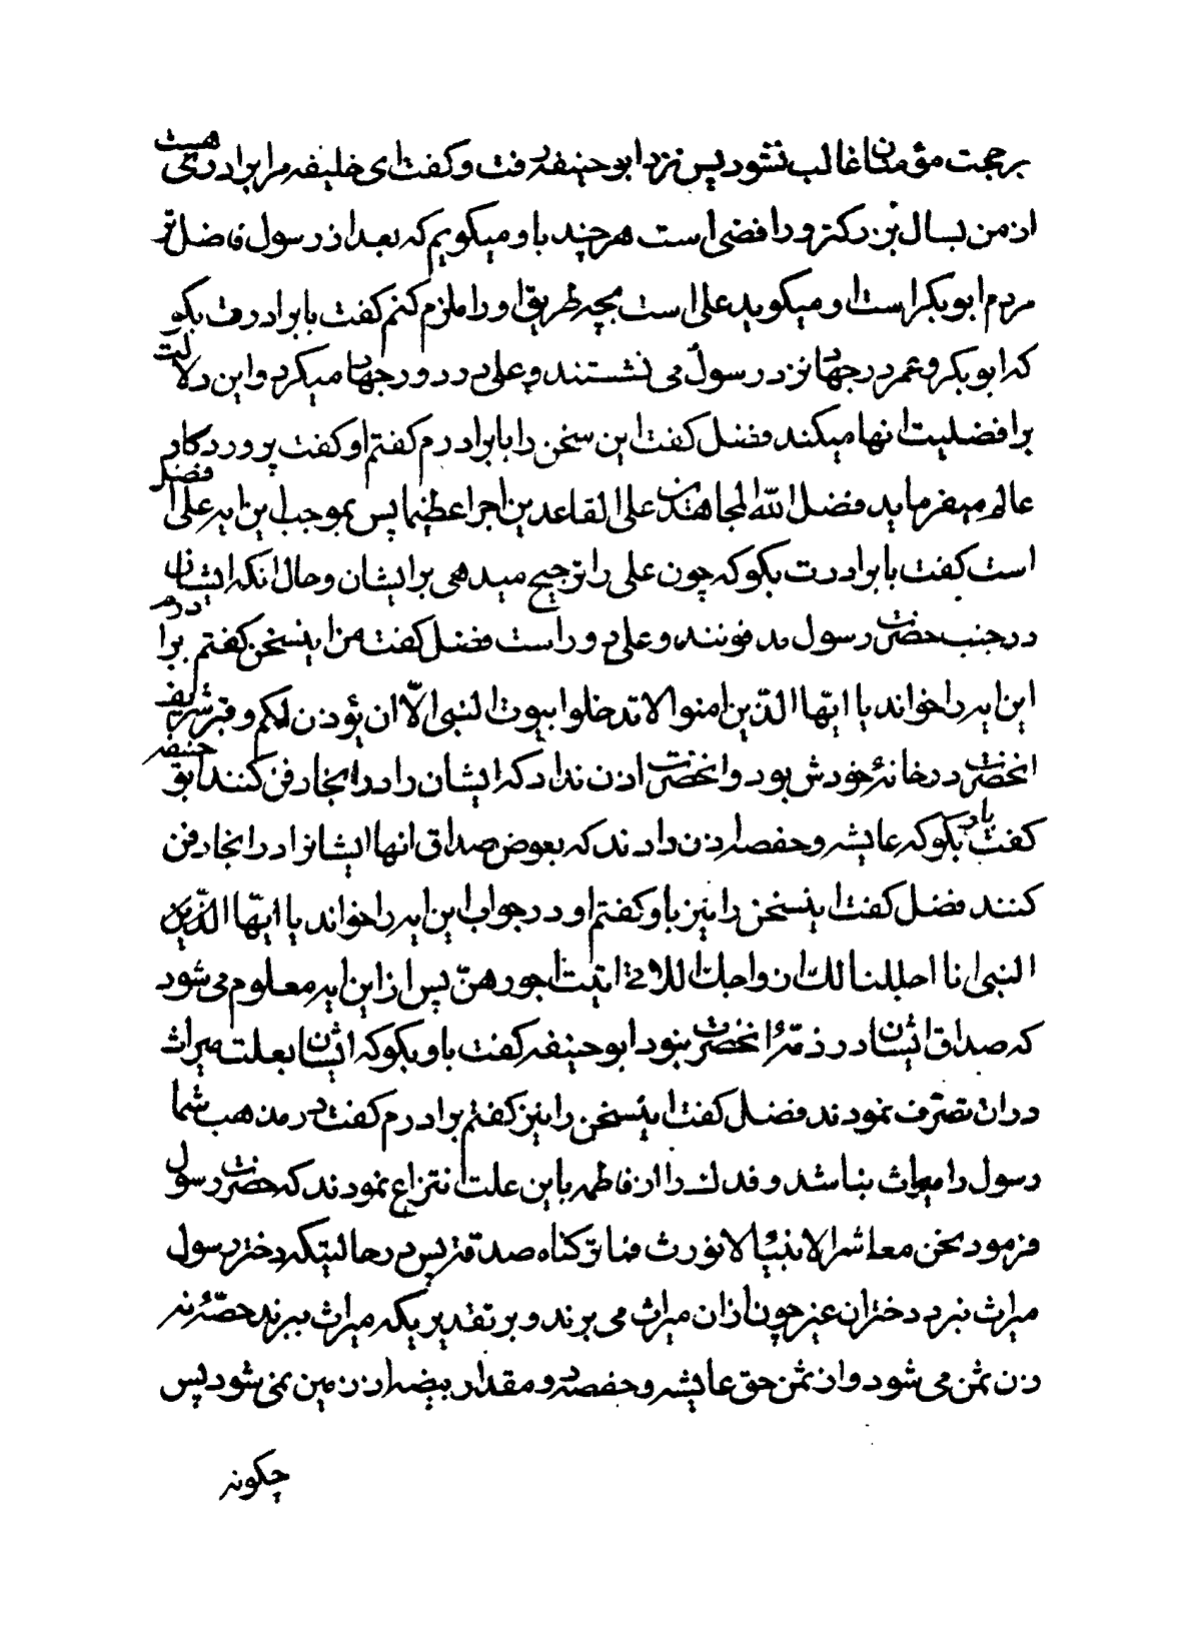 بر حجت مؤمنان غالب نشود پس نزد ابو حنیفه رفت و کفت ای خلیفه مرا برادری هست
از من بسال بزرکتر و رافضی است هر چند با و میکویم که بعد از رسول فاضل تر
مردم ابو بکر است او میکوید علی است بچه طریق او را ملزم کنم کفت با برادرت بکو
که ابو بکر و عمر در جهاد نزد رسول می نشستند و علی در دور جهاد میکرد و این دلالت
بر افضلیت انها میکند فضل کفت این سخن را با برادرم کفتم او کفت پروردکار
عالم میفرماید فضل الله المجاهدین علی القاعدین اجرا عظیما پس بموجب این ایه علی افضل
است کفت با برادرت بکو که چون علی را ترجیح میدهی بر ایشان و حال انکه ایشان
در جنب حضرت رسول مدفونند و علی دور است فضل کفت من اینسخن کفتم برادرم
این ایه را خواند یا ایّها الذّین امنوا لا تدخلوا بیوت النبی الاّ ان یؤذن لکم و قبر شریف
انحضرت در خانهٔ خودش بود و انحضرت اذن نداد که ایشان را در انجا دفن کنند ابو حنیفه
کفت باو بکو که عایشه و حفصه اذن دادند که بعوض صداق انها ایشانرا در انجا دفن
کنند فضل کفت اینسخن را نیز باو کفتم او در جواب این ایه را خواند یا ایّها الذّین
النبی انا احللنا لك ازواجك اللاتی اتیت اجورهنّ پس از این ایه معلوم می شود
که صداق ایشان در ذمّهٔ انحضرت نبود ابو حنیفه کفت باو بکو که ایشان بعلت میراث
در ان تصرّف نمودند فضل کفت اینسخن را نیز کفتم برادرم کفت در مذهب شما
رسول را میراث نباشد و فدك را از فاطمه باین علت انتزاع نمودند که حضرت رسول
فرمود نحن معاشر الانبیاء لا نورث فما ترکناه صدقة پس در حالیتکه دختر رسول
میراث نبرد دختران غیر چون از ان میراث می برند و بر تقدیریکه میراث ببرند حصّهٔ نه
زن ثمن می شود و از ثمن حق عایشه و حفصه دو مقدار بیضه از زمین نمی شود پس
چکونه